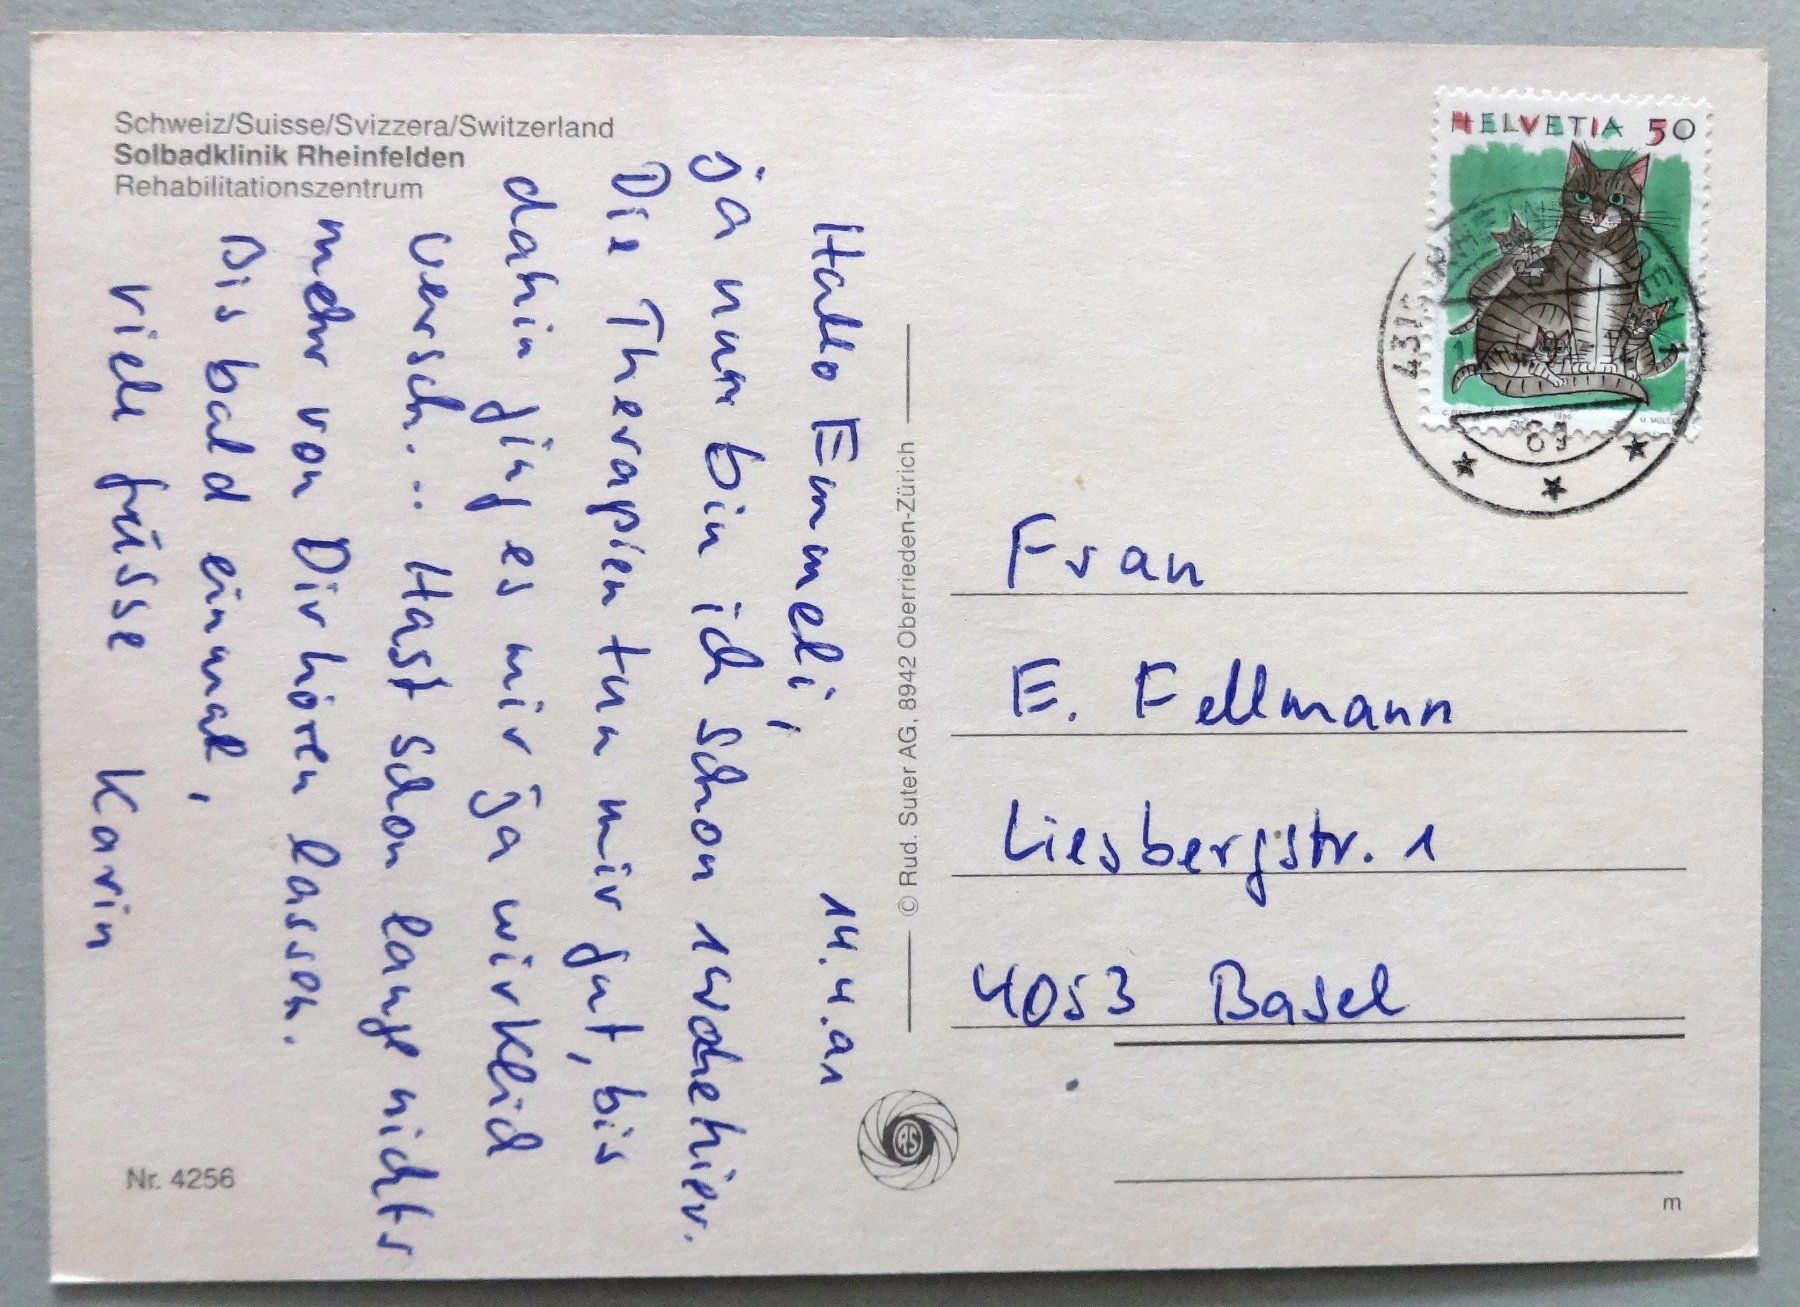 Schweiz/Suisse/Svizzera/Switzerland
Solbadklinik Rheinfelden
Rehabilitationszentrum
Hallo Emmeli,
14.4.91
ja nun bin ich schon 1 Woche hier.
Die Therapien tun mir gut, bis
dahin ging es mir ja wirklich
versch... Hast schon lange nichts
mehr von Dir hören lassen.
Bis bald einmal,
viele grüsse Karin
Nr. 4256
© Rud. Suter AG, 8942 Oberrieden-Zürich
RS
HELVETIA 50
1990
4310
RHEINFELDEN 1
Frau
E. Fellmann
Liesbergstr. 1
4053 Basel
m